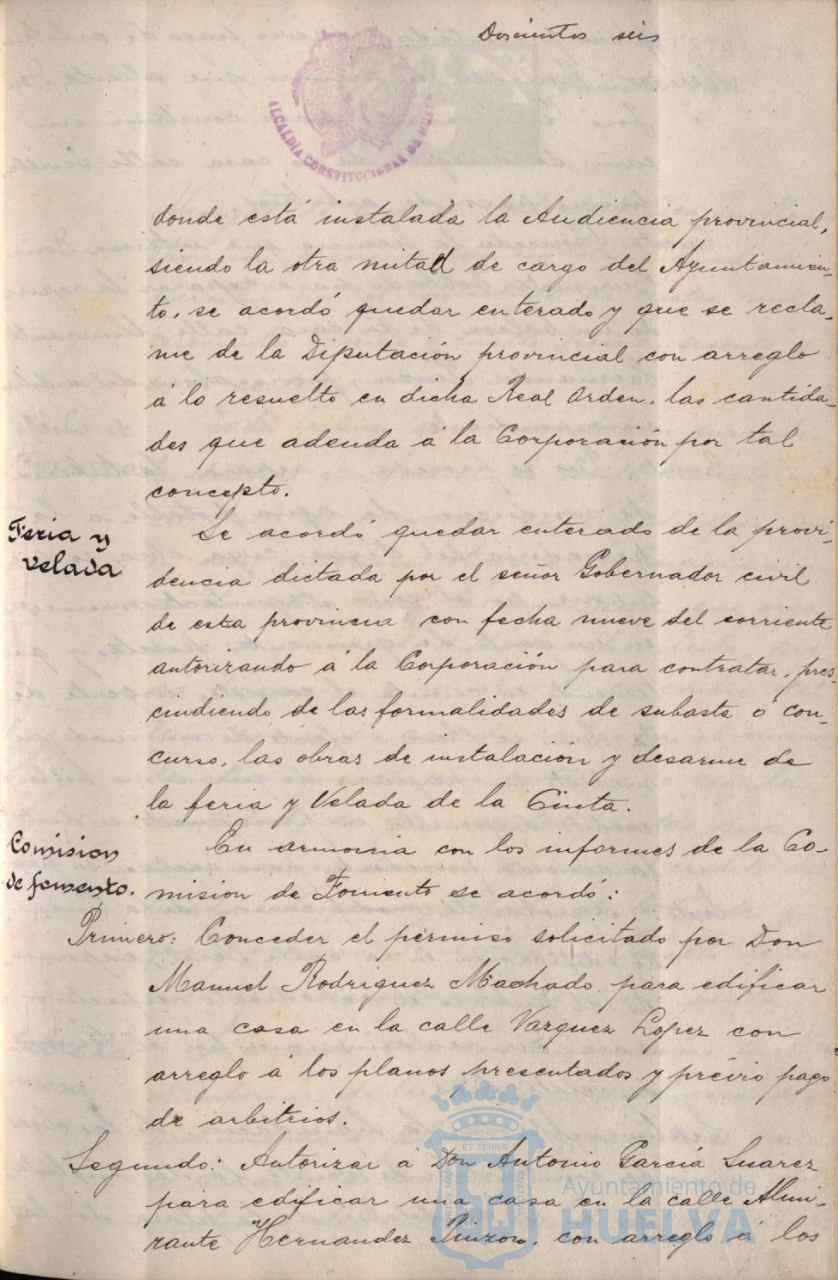 Doscientos seis
ALCALDÍA CONSTITUCIONAL DE HUELVA
donde está instalada la Audiencia provincial,
siendo la otra mitad de cargo del Ayuntamien-
to, se acordó quedar enterado y que se recla-
me de la Diputación provincial con arreglo
á lo resuelto en dicha Real Orden, las cantida-
des que adeuda á la Corporación por tal
concepto.
Feria y
velada
Se acordó quedar enterado de la provi-
dencia dictada por el señor Gobernador civil
de esta provincia con fecha nueve del corriente
autorizando á la Corporación para contratar, pres-
cindiendo de las formalidades de subasta ó con-
curso, las obras de instalación y desarme de
la feria y Velada de la Cinta.
Comision
de fomento.
En armonia con los informes de la Co-
mision de Fomento se acordó:
Primero: Conceder el permiso solicitado por Don
Manuel Rodriguez Machado para edificar
una casa en la calle Vazquez Lopez con
arreglo á los planos presentados y prévio pago
de arbitrios.
Segundo: Autorizar á Don Antonio García Suarez
para edificar una casa en la calle Almi-
rante Hernandez Pinzon, con arreglo á los
ET TERRÆ
Ayuntamiento de
HUELVA